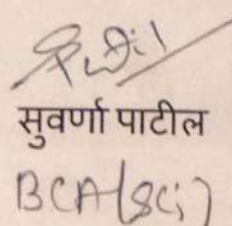 सुवर्णा पाटील
BCA(SCi)